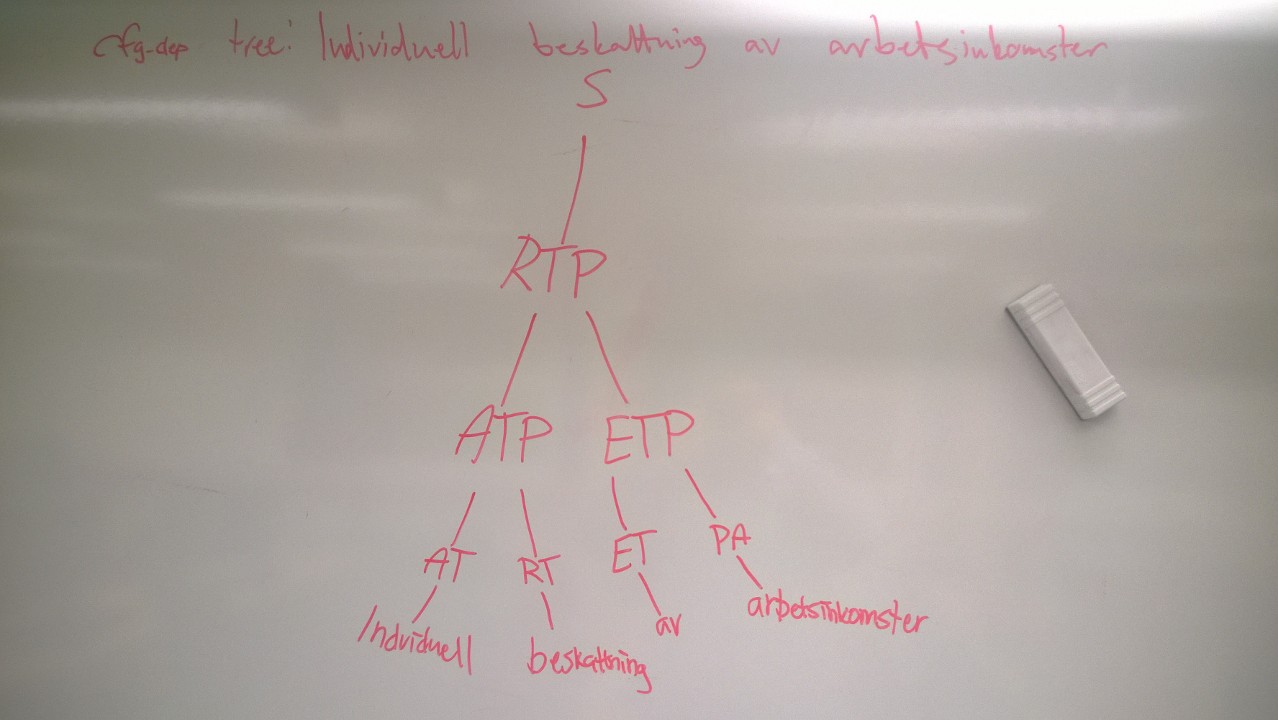 cfg-dep tree: Individuell beskattning av arbetsinkomster
S
RTP
ATP ETP
AT RT ET PA
Individuell beskattning av arbetsinkomster